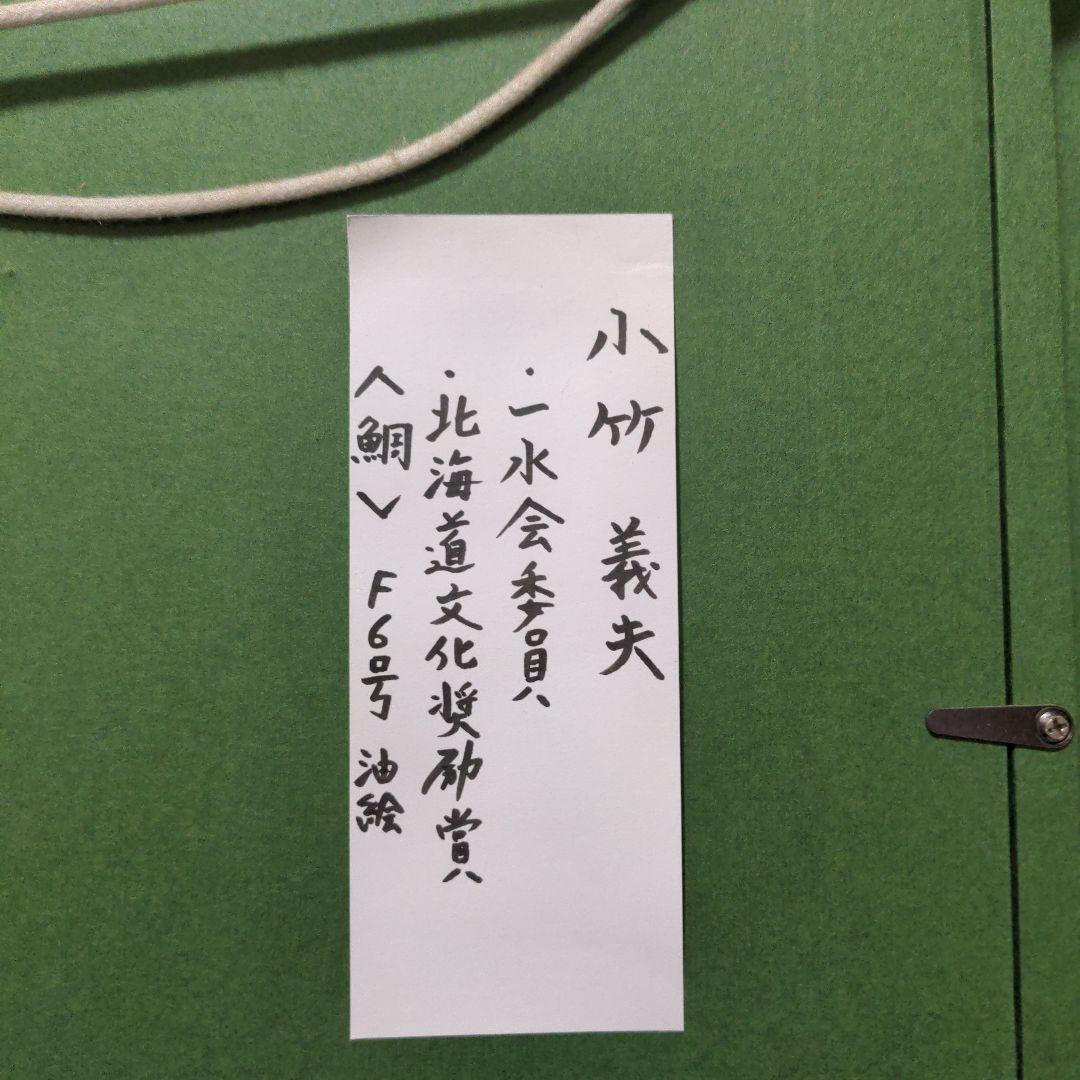 小竹 義夫
・一水会委員
・北海道文化奨励賞
〈鯛〉 F6号 油絵